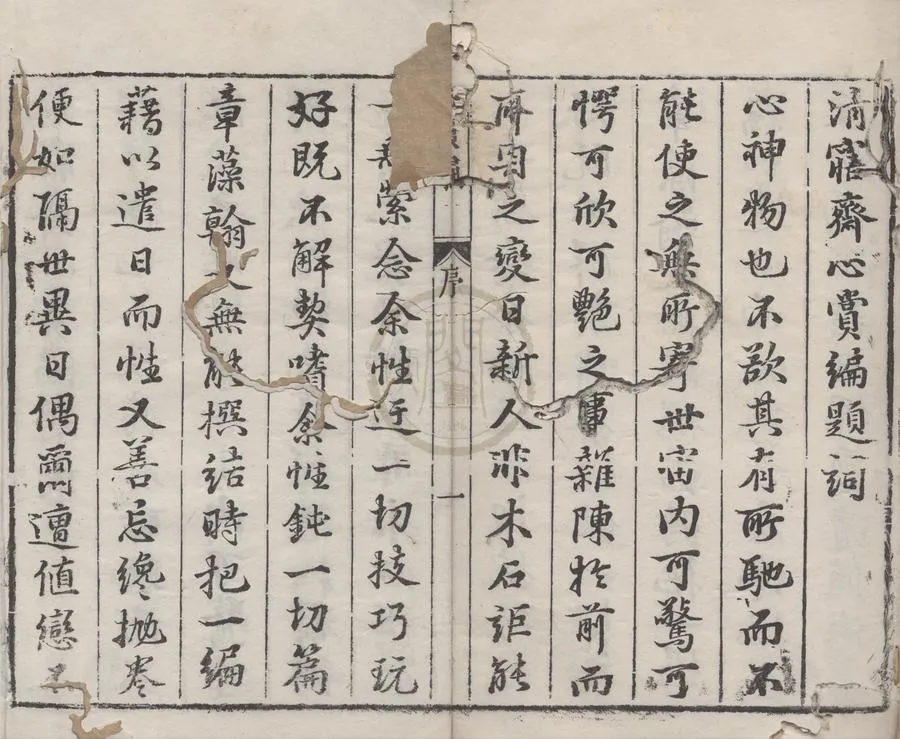 清寤齋心賞編題詞
心神物也不欲其有所馳而不
能使之無所寄世宙内可驚可
愕可欣可艷之事雜陳於前而
耳目之變日新人非木石詎能
序
一
一無縈念余性迂一切技巧玩
好既不解契嗜余性鈍一切篇
章藻翰又無能撰結時把一編
藉以遣日而性又善忘纔拋卷
便如隔世異日偶爾遭值戀